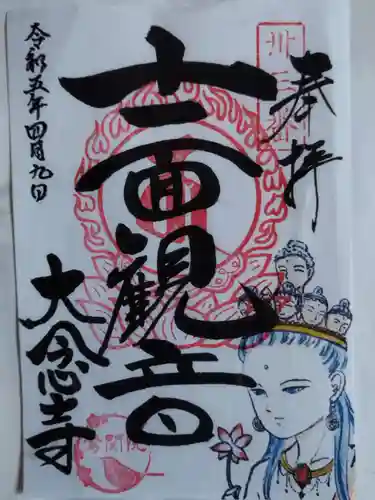 奉拝
卅三
十一面観音
大念寺
令和五年四月九日